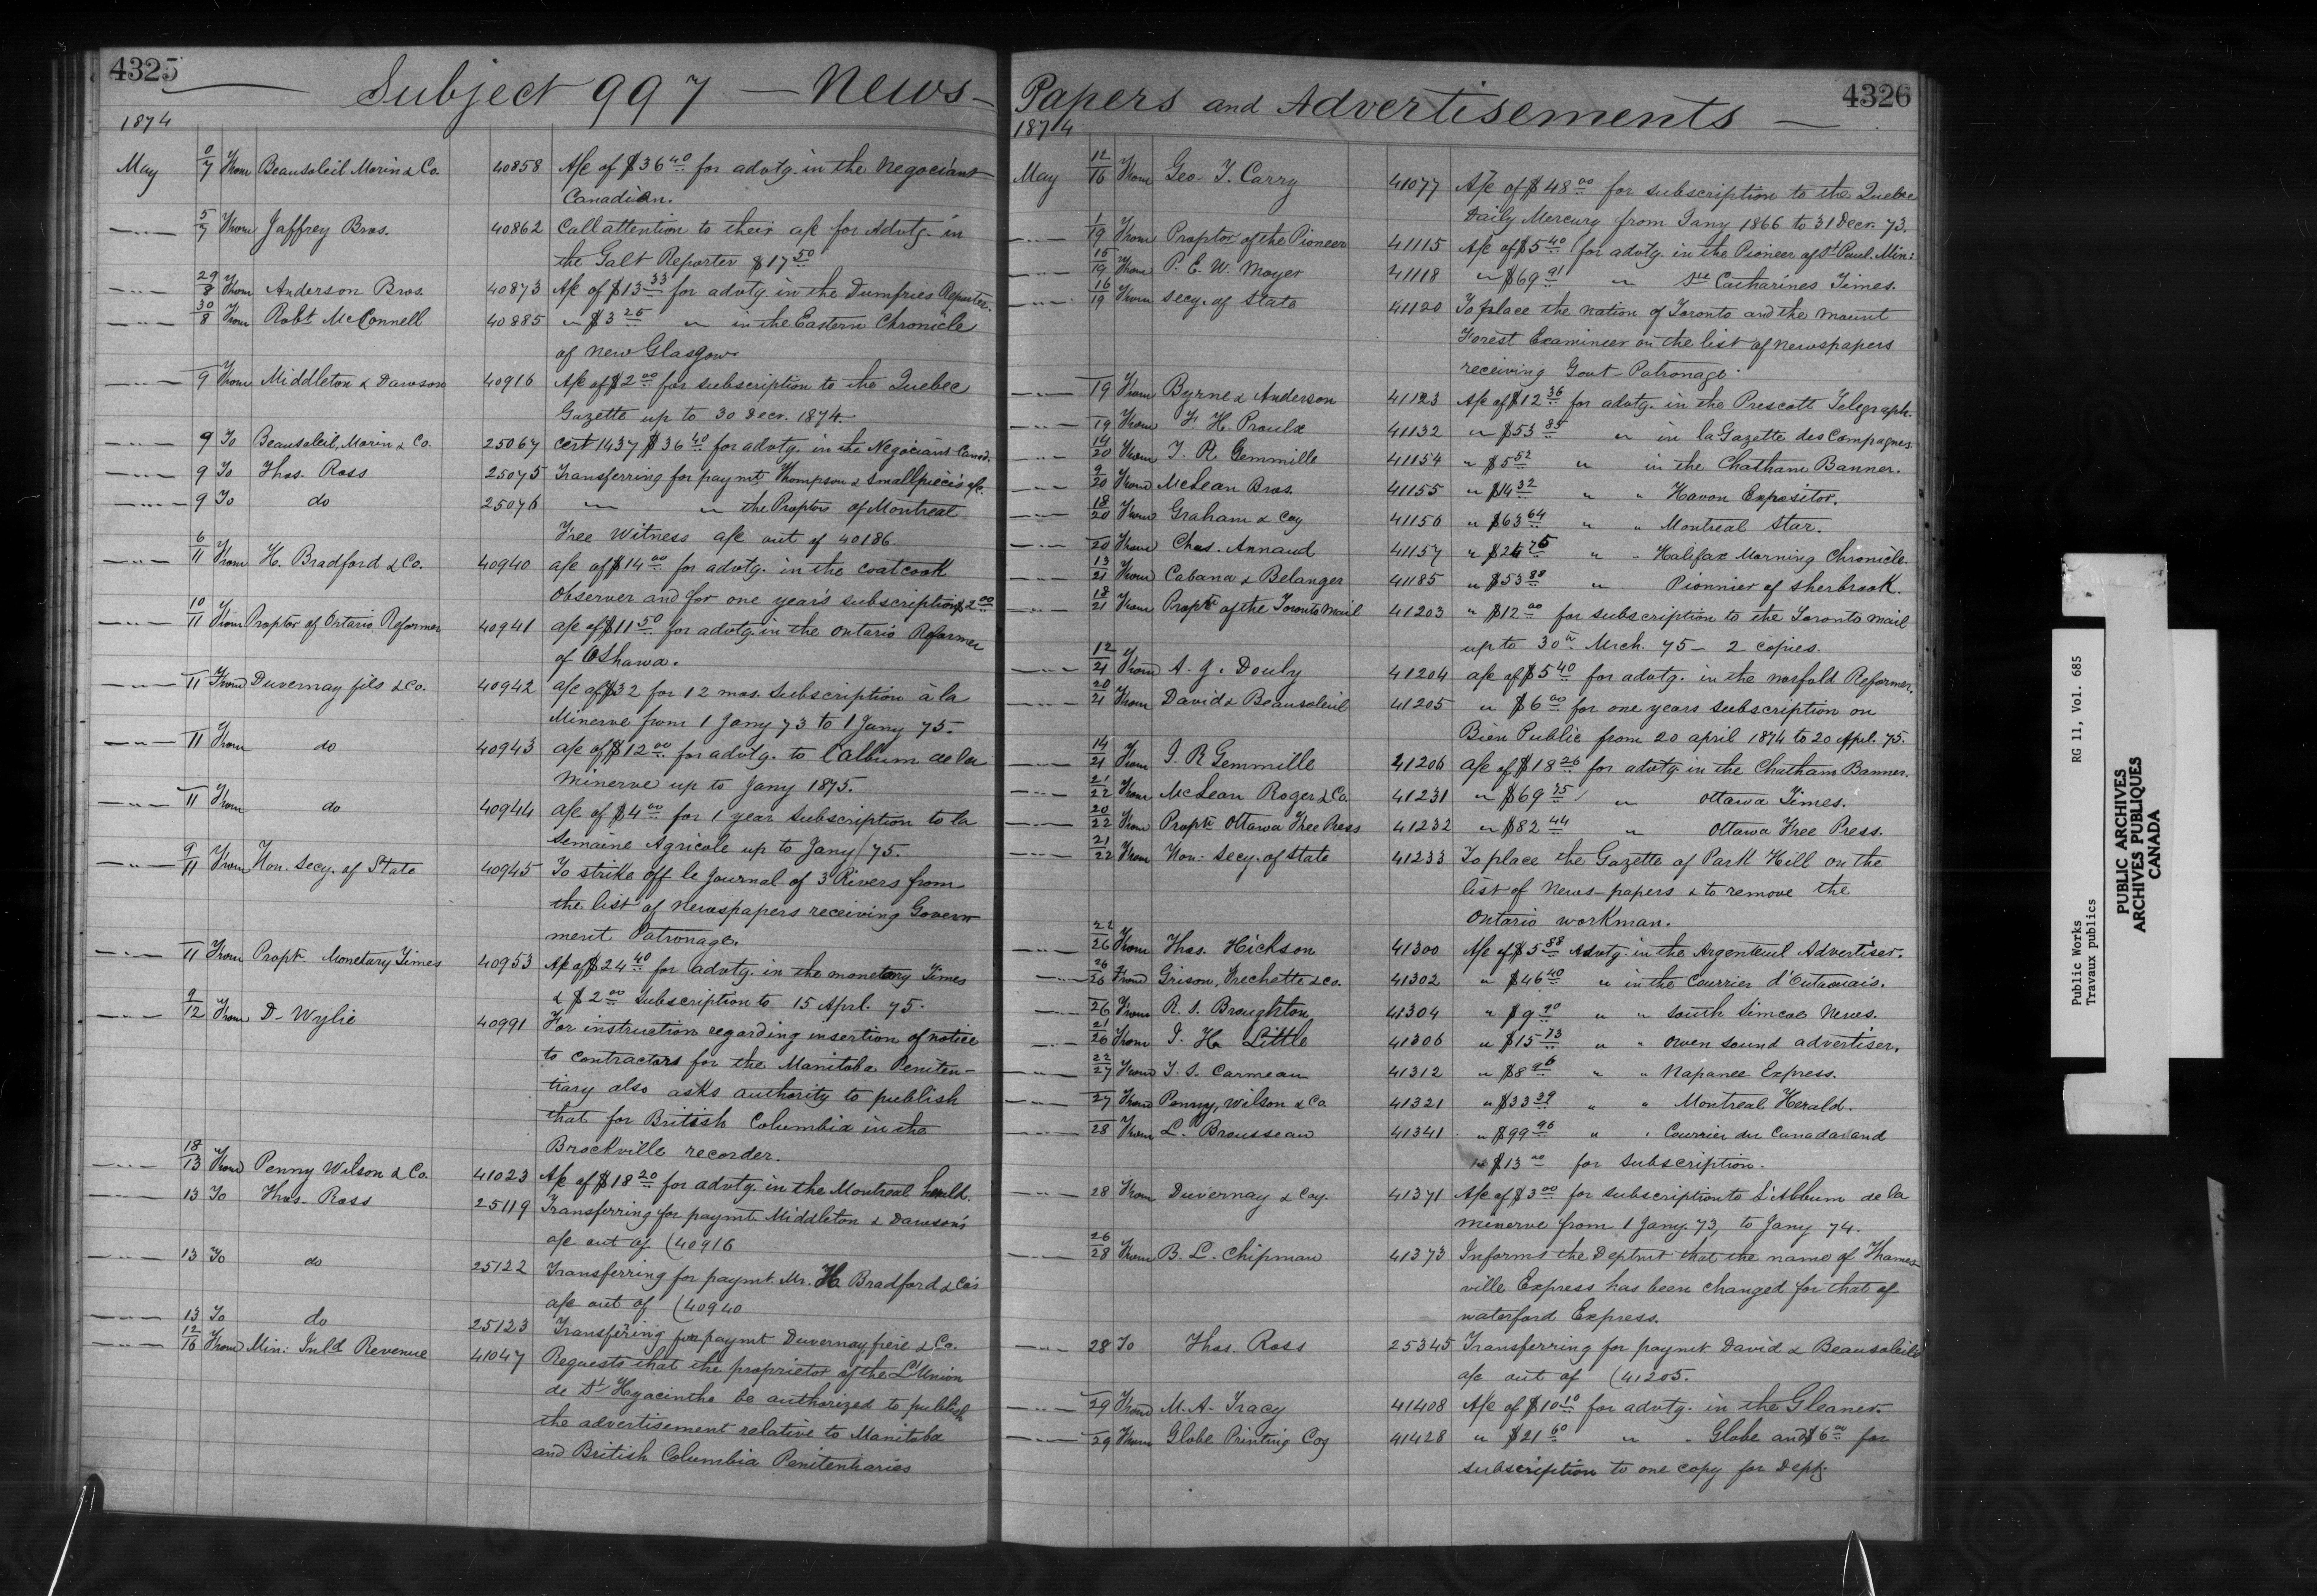 4325
Subject 997 — News-
1874
May 0/7 From Beausoleil Morin & Co. 40858 A/c of $36.40 for advtg. in the Negociant
Canadian.
—"— 5/7 From Jaffrey Bros. 40862 Call attention to their a/c for Advtg. in
the Galt Reporter $17.50
—"— 29/8 From Anderson Bros. 40873 A/c of $13.33 for advtg. in the Dumfries Reporter.
—"— 30/8 From Robt McConnell 40885 " $3.25 " in the Eastern Chronicle
of New Glasgow.
—"— 9 From Middleton & Dawson 40916 A/c of $2.00 for subscription to the Quebec
Gazette up to 30 Decr. 1874.
—"— 9 To Beausoleil, Morin & Co. 25067 Cert 1437 $36.40 for advtg. in the Negociant Canad.
—"— 9 To Thos. Ross 25075 Transferring for paymt Thompson & Smallpiece's a/c.
—"— 9 To do 25076 " " the Proptor of Montreal
Free Witness a/c out of 40186.
—"— 6/11 From H. Bradford & Co. 40940 a/c of $14.00 for advtg. in the Coatcook
Observer and for one year's subscription $2.00
—"— 10/11 From Proptor of Ontario Reformer 40941 a/c of $11.50 for advtg. in the Ontario Reformer
of Oshawa.
—"— 11 From Duvernay fils & Co. 40942 a/c of $32 for 12 mos. subscription à la
Minerve from 1 Jany 73 to 1 Jany 75.
—"— 11 From do 40943 a/c of $12.00 for advtg. to l'album de la
Minerve up to Jany 1875.
—"— 11 From do 40944 a/c of $4.00 for 1 year subscription to la
Semaine Agricole up to Jany/75.
—"— 9/11 From Hon. Secy. of State 40945 To strike off le Journal of 3 Rivers from
the list of newspapers receiving Govern
ment Patronage.
—"— 11 From Proptr Monetary Times 40953 A/c of $24.40 for advtg. in the monetary Times
& $2.00 Subscription to 15 Aprl. 75.
—"— 9/12 From D. Wylie 40991 For instruction regarding insertion of notice
to contractors for the Manitoba Peniten-
tiary also asks authority to publish
that for British Columbia in the
Brockville recorder.
—"— 18/13 From Penny Wilson & Co. 41023 A/c of $18.20 for advtg. in the Montreal herald.
—"— 13 To Thos. Ross 25119 Transferring for paymt. Middleton & Dawson's
a/c out of (40916
—"— 13 To do 25122 Transferring for paymt. Mr. H. Bradford & Co's
a/c out of (40940
—"— 13 To do 25123 Transfering for paymt Duvernay, frère & Co.
—"— 12/16 From Min: Inld Revenue 41047 Requests that the proprietor of the L'Union
de St Hyacinthe be authorized to publish
the advertisement relative to Manitoba
and British Columbia Penitentiaries
4326
Papers and Advertisements —
1874
May 12/16 From Geo. T. Carry 41077 A/c of $48.00 for subscription to the Quebec
Daily Mercury from Jany 1866 to 31 Decr. 73.
—"— 1/19 From Proptor of the Pioneer 41115 A/c of $5.40 for advtg. in the Pioneer of St Paul. Min:
—"— 16/19 From P. E. W. Moyer 41118 " $69.91 " Ste Catharines Times.
—"— 16/19 From Secy. of State 41120 To place the nation of Toronto and the Mount
Forest Examineer on the list of newspapers
receiving Govt Patronage.
—"— 19 From Byrne & Anderson 41123 A/c of $12.36 for advtg. in the Prescott Telegraph.
—"— 19 From F. H. Proulx 41132 " $53.85 " in la Gazette des Campagnes.
—"— 14/20 From J. R. Gemmille 41154 " $5.52 " in the Chatham Banner.
—"— 9/20 From McLean Bros. 41155 " $14.32 " " Huron Expositor.
—"— 18/20 From Graham & Coy 41156 " $63.64 " " Montreal Star.
—"— 20 From Chas. Annand 41157 " " " Halifax Morning Chronicle.
—"— 13/21 From Cabana & Belanger 41185 " $53.88 " Pionnier of Sherbrook.
—"— 18/21 From Proptr of the Toronto Mail 41203 " $12.00 for subscription to the Toronto mail
up to 30th Mrch. 75 - 2 copies.
—"— 12/21 From A. J. Douly 41204 a/c of $5.40 for advtg. in the Norfold Reformer.
—"— 20/21 From David & Beausoleil 41205 " $6.00 for one years subscription on
Bien Public from 20 april 1874 to 20 Aprl. 75.
—"— 14/21 From J. R Gemmille 41206 a/c of $18.26 for advtg. in the Chatham Banner.
—"— 21/22 From McLean Roger & Co. 41231 " $69.75 " Ottawa Times.
—"— 20/22 From Proptr Ottawa Free Press 41232 " $82.44 " Ottawa Free Press.
—"— 21/22 From Hon: Secy. of State 41233 To place the Gazette of Park Hill on the
list of News-papers & to remove the
Ontario workman.
—"— 22/26 From Thos. Hickson 41300 A/c of $5.88 Advtg. in the Argenteuil Advertiser.
—"— 26/26 From Grison, Frechette & Co. 41302 " $46.40 " in the Courrier d'Outaouais.
—"— 26 From R. S. Broughton 41304 " $9.90 " " South Simcoe News.
—"— 21/26 From J. H. Little 41306 " $15.73 " " Owen Sound advertiser.
—"— 22/27 From T. S. Carmean 41312 " $8.96 " " Napanee Express.
—"— 27 From Penny, Wilson & Co 41321 " $33.39 " " Montreal Herald.
—"— 28 From L. Brousseau 41341 " $99.96 " " Courrier du Canada and
" $13.00 for subscription.
—"— 28 From Duvernay & Coy. 41371 A/c of $3.00 for subscription to L'Album de la
minerve from 1 Jany. 73, to Jany 74.
—"— 26/28 From B. L. Chipman 41373 Informs the Deptmt that the name of Thames-
ville Express has been changed for that of
waterford Express.
—"— 28 To Thos. Ross 25345 Transferring for paymt David & Beausoleil's
a/c out of (41205.
—"— 29 From M. A. Tracy 41408 A/c of $10.10 for advtg. in the Gleaner.
—"— 29 From Globe Printing Coy 41428 " $21.60 " " Globe and $6.00 for
subscription to one copy for Dept.
Public Works RG 11, Vol. 685
Travaux publics
PUBLIC ARCHIVES
ARCHIVES PUBLIQUES
CANADA